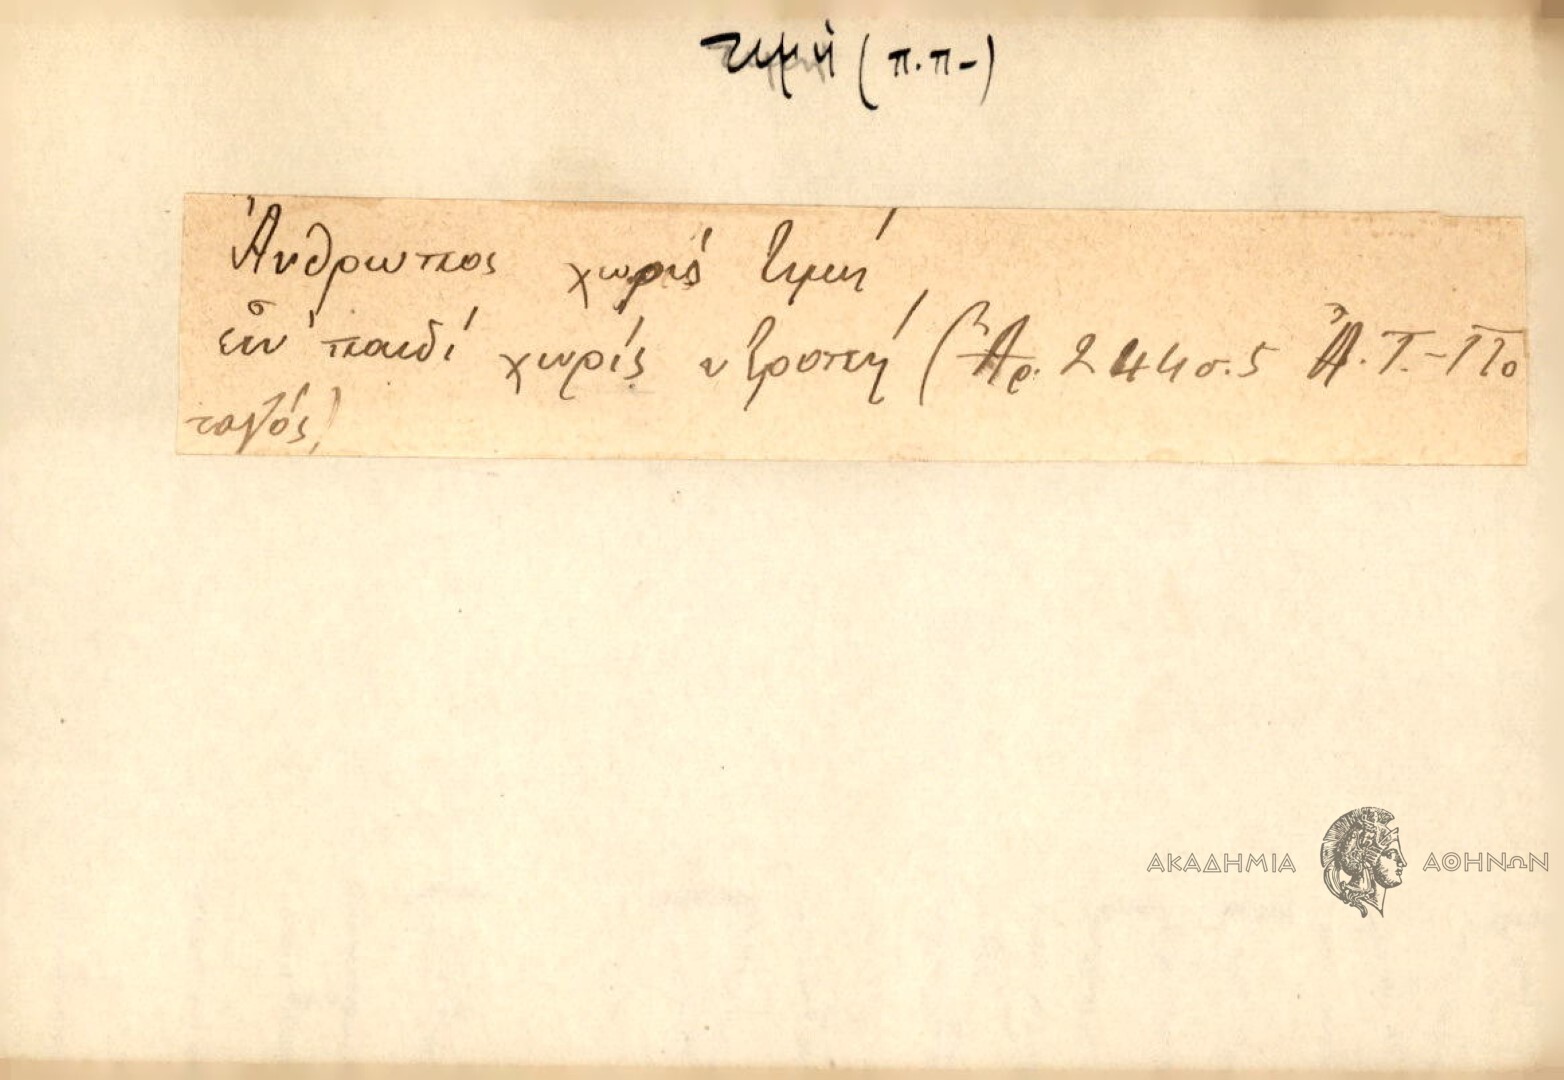 τιμή (π.π-)
Ἄνθρωπος χωρίς τιμή
εἶν' παιδί χωρίς ντροπή (Ἀρ. 244 σ. 5 Ἀ. Τ. - Πο
ταμός)
ΑΚΑΔΗΜΙΑ ΑΘΗΝΩΝ